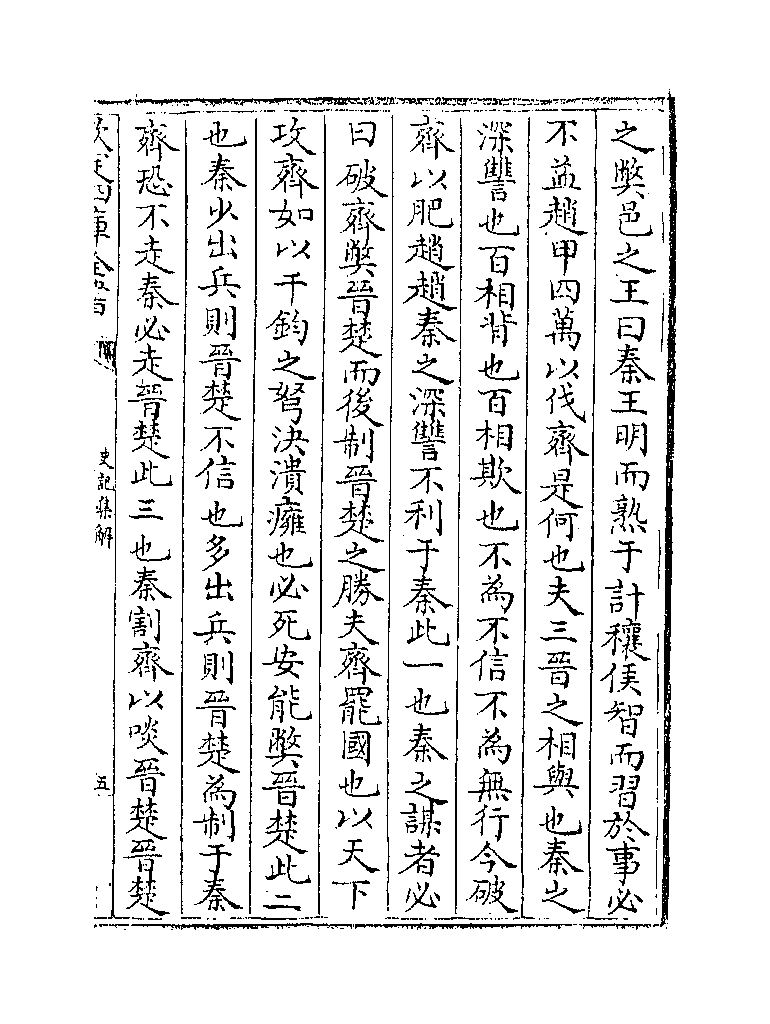 之弊邑之王曰秦王明而熟于計穰侯智而習於事必
不益趙甲四萬以伐齊是何也夫三晉之相與也秦之
深讐也百相背也百相欺也不為不信不為無行今破
齊以肥趙趙秦之深讐不利于秦此一也秦之謀者必
曰破齊弊晉楚而後制晉楚之勝夫齊罷國也以天下
攻齊如以千鈞之弩決潰癰也必死安能弊晉楚此二
也秦少出兵則晉楚不信也多出兵則晉楚為制于秦
齊恐不走秦必走晉楚此三也秦割齊以啖晉楚晉楚
欽定四庫全書
史記集解
五